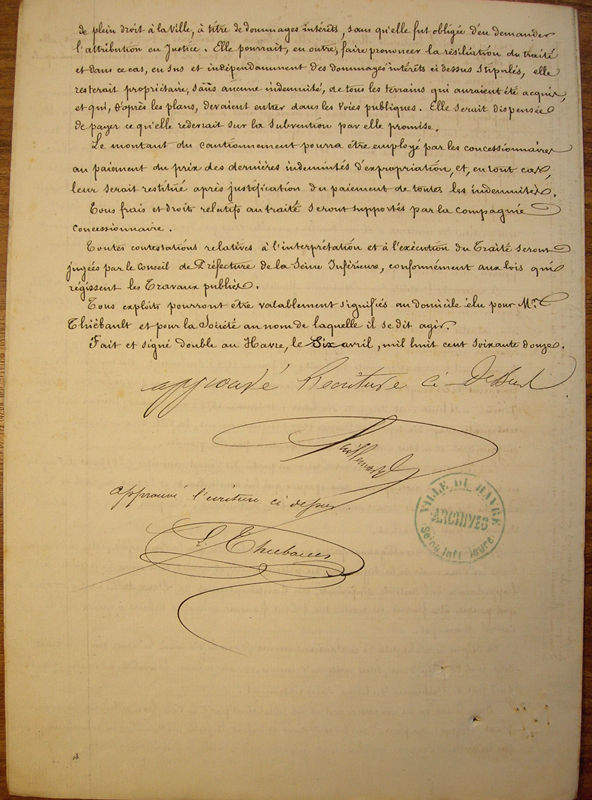 de plein droit à la ville, à titre de dommages intérêts, sans qu'elle fut obligée d'en demander
l'attribution en Justice. Elle pourrait, en outre, faire prononcer la résiliation du traité
et dans ce cas, en sus et indépendamment des dommages intérêts ci dessus stipulés, elle
resterait propriétaire, sans aucune indemnité, de tous les terrains qui auraient été acquis,
et qui, d'après les plans, devaient entrer dans les Voies publiques. Elle serait dispensée
de payer ce qu'elle redevrait sur la subvention par elle promise.
Le montant du cautionnement pourra être employé par les concessionnaires
au paiement du prix des dernières indemnités d'expropriation, et, en tout cas,
leur serait restitué après justification du paiement de toutes les indemnités.
Tous frais et droits relatifs au traité seront supportés par la compagnie
concessionnaire.
Toutes contestations relatives à l'interprétation et à l'exécution du Traité seront
jugées par le Conseil de Préfecture de la Seine Inférieure, conformément aux lois qui
régissent les Travaux publics.
Tous exploits pourront être valablement signifiés au domicile élu pour Mr.
Thiébault et pour la Société au nom de laquelle il se dit agir.
Fait et signé double au Havre, le Six avril, mil huit cent soixante douze.
approuvé l'écriture ci-dessus
approuvé l'écriture ci dessus.
VILLE DU HAVRE
ARCHIVES
Seine Inférieure